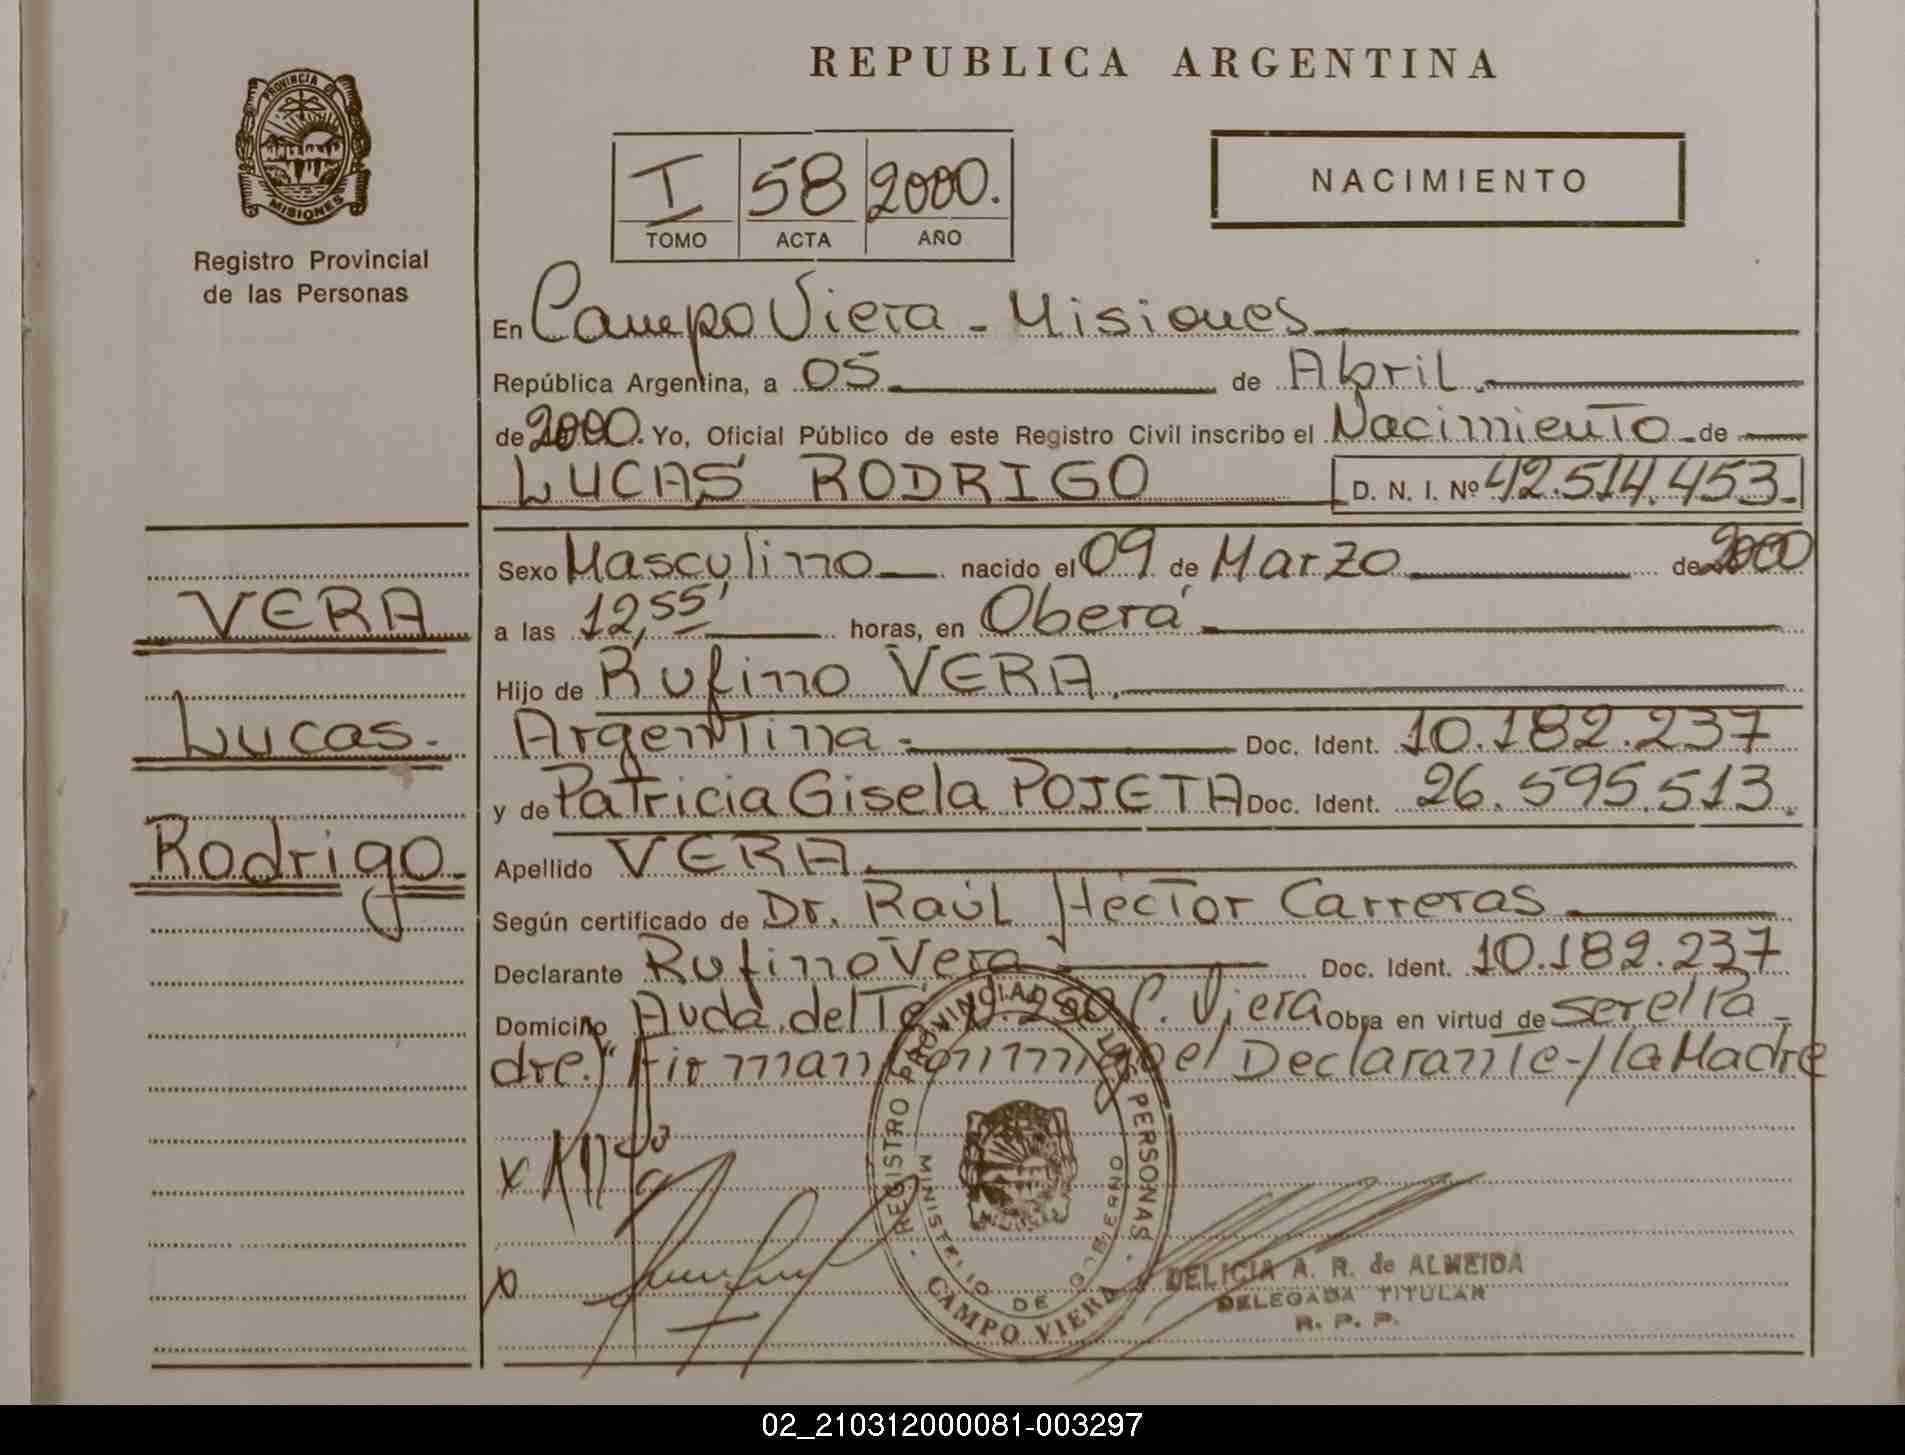 REPUBLICA ARGENTINA
PROVINCIA DE
MISIONES
Registro Provincial
de las Personas
I 58 2000.
TOMO ACTA AÑO
NACIMIENTO
En Campo Viera - Misiones
República Argentina, a 05 de Abril
de 2000. Yo, Oficial Público de este Registro Civil inscribo el Nacimiento de
LUCAS RODRIGO D. N. I. Nº 42.514.453.
Sexo Masculino nacido el 09 de Marzo de 2000
a las 12,55' horas, en Oberá
Hijo de Rufino VERA.
Argentina. Doc. Ident. 10.182.237
y de Patricia Gisela POJETA Doc. Ident. 26.595.513.
Apellido VERA.
Según certificado de Dr. Raúl Héctor Carreras
Declarante Rufino Vera Doc. Ident. 10.182.237
Domicilio Avda. del Té Nº 250 C. Viera Obra en virtud de ser el Pa-
dre." Firman conmigo el Declarante-/la Madre
VERA
Lucas.
Rodrigo
x
x
REGISTRO PROVINCIAL DE LAS PERSONAS
MINISTERIO DE GOBIERNO
CAMPO VIERA
DELICIA A. R. de ALMEIDA
DELEGADA TITULAR
R. P. P.
02_210312000081-003297